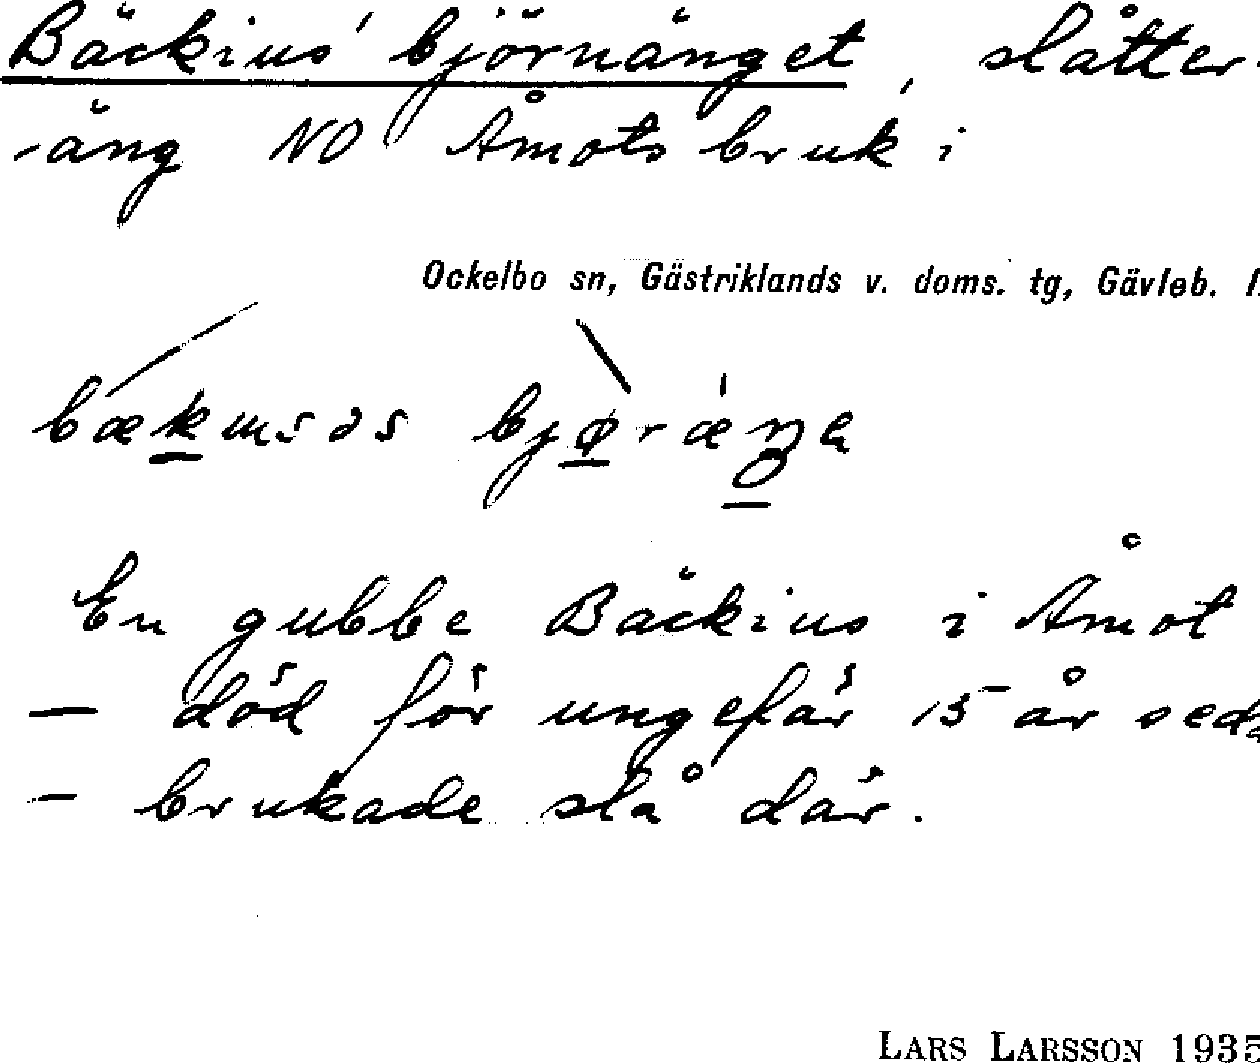 Bäckius' björnänget, slåtter-
-äng NO Åmots bruk i
Ockelbo sn, Gästriklands v. doms. tg, Gävleb. l
En gubbe Bäckius i Åmot
— död för ungefär 15 år sed
— brukade slå där.
LARS LARSSON 1935